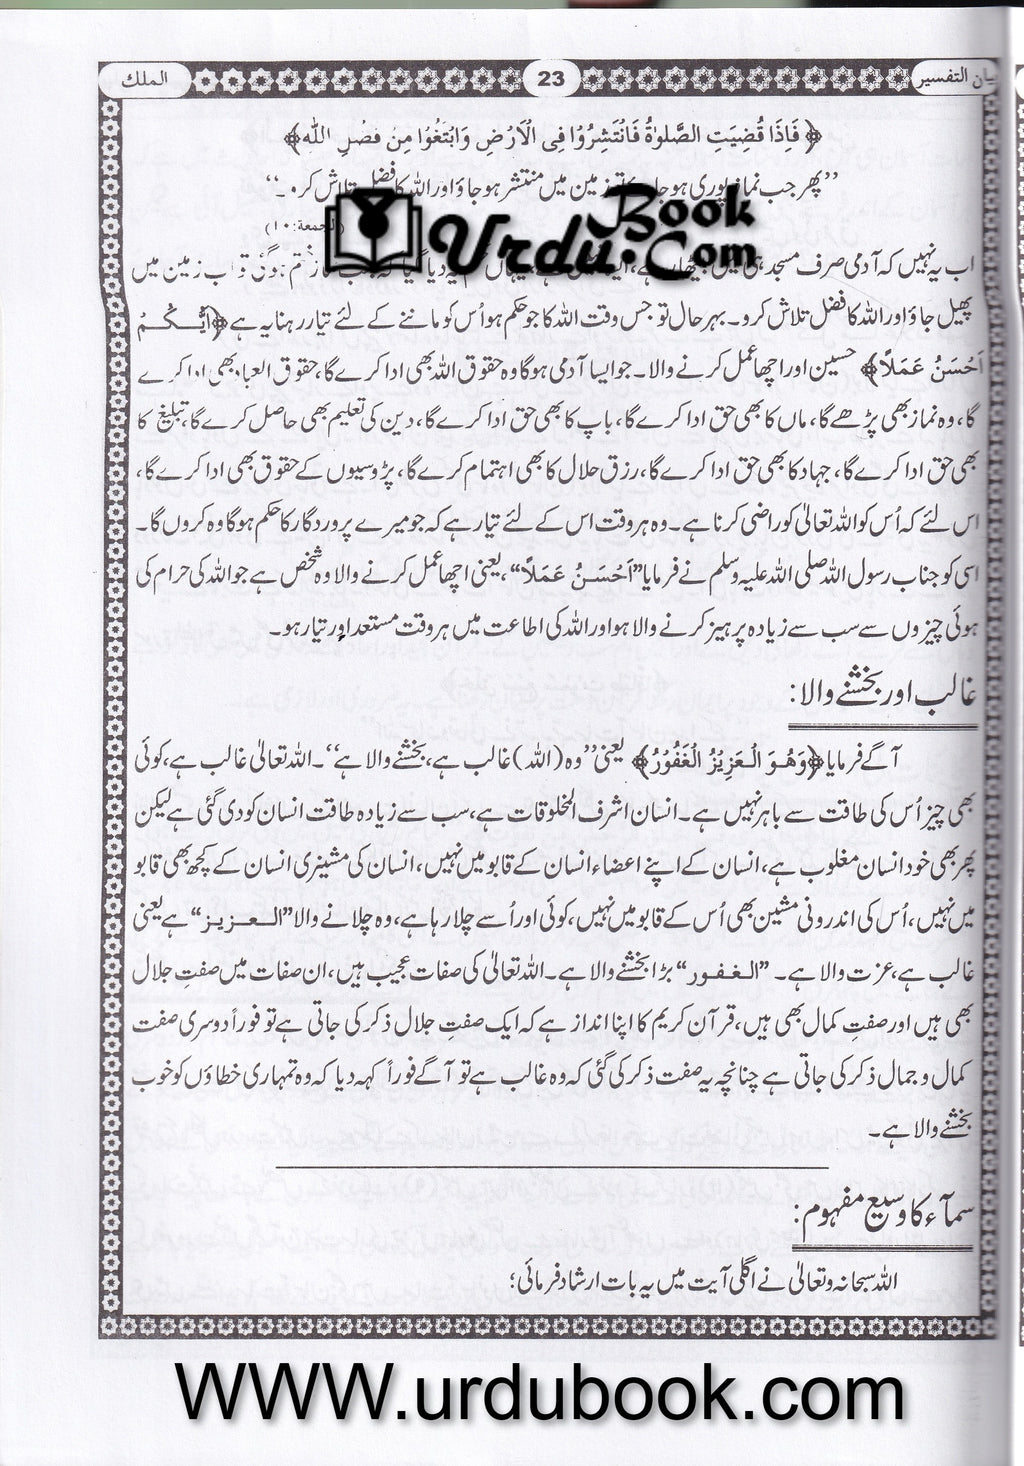 بیان التفسیر
23
الملك
﴿فَاِذَا قُضِيَتِ الصَّلٰوةُ فَانْتَشِرُوْا فِى الْاَرْضِ وَابْتَغُوْا مِنْ فَضْلِ اللّٰهِ﴾
”پھر جب نماز پوری ہو جائے تو زمین میں منتشر ہو جاؤ اور اللہ کا فضل تلاش کرو۔“
Book
Urdu.Com
(الجمعة:۱۰)
اب یہ نہیں کہ آدمی صرف مسجد ہی میں بیٹھا رہے، ختم ہوگئی تو اب زمین میں
پھیل جاؤ اور اللہ کا فضل تلاش کرو۔ بہر حال تو جس وقت اللہ کا جو حکم ہو اُس کو ماننے کے لئے تیار رہنا یہ ہے ﴿اَيُّكُمْ
اَحْسَنُ عَمَلًا﴾ حسین اور اچھا عمل کرنے والا۔ جو ایسا آدمی ہوگا وہ حقوق اللہ بھی ادا کرے گا، حقوق العباد بھی ادا کرے
گا، وہ نماز بھی پڑھے گا، ماں کا بھی حق ادا کرے گا، باپ کا بھی حق ادا کرے گا، دین کی تعلیم بھی حاصل کرے گا، تبلیغ کا
بھی حق ادا کرے گا، جہاد کا بھی حق ادا کرے گا، رزق حلال کا بھی اہتمام کرے گا، پڑوسیوں کے حقوق بھی ادا کرے گا،
اس لئے کہ اُس کو اللہ تعالیٰ کو راضی کرنا ہے۔ وہ ہر وقت اس کے لئے تیار ہے کہ جو میرے پروردگار کا حکم ہوگا وہ کروں گا۔
اسی کو جناب رسول اللہ صلی اللہ علیہ وسلم نے فرمایا ”اَحْسَنُ عَمَلًا“، یعنی اچھا عمل کرنے والا وہ شخص ہے جو اللہ کی حرام کی
ہوئی چیزوں سے سب سے زیادہ پرہیز کرنے والا ہو اور اللہ کی اطاعت میں ہر وقت مستعد اور تیار ہو۔
غالب اور بخشنے والا:
آگے فرمایا ﴿وَهُوَ الْعَزِيْزُ الْغَفُوْرُ﴾ یعنی ”وہ (اللہ) غالب ہے، بخشنے والا ہے“۔ اللہ تعالیٰ غالب ہے، کوئی
بھی چیز اُس کی طاقت سے باہر نہیں ہے۔ انسان اشرف المخلوقات ہے، سب سے زیادہ طاقت انسان کو دی گئی ہے لیکن
پھر بھی خود انسان مغلوب ہے، انسان کے اپنے اعضاء انسان کے قابو میں نہیں، انسان کی مشینری انسان کے کچھ بھی قابو
میں نہیں، اُس کی اندرونی مشین بھی اُس کے قابو میں نہیں، کوئی اور اُسے چلا رہا ہے، وہ چلانے والا ”العزيز“ ہے یعنی
غالب ہے، عزت والا ہے۔ ”الغفور“ بڑا بخشنے والا ہے۔ اللہ تعالیٰ کی صفات عجیب ہیں، ان صفات میں صفتِ جلال
بھی ہیں اور صفت کمال بھی ہیں، قرآن کریم کا اپنا انداز ہے کہ ایک صفتِ جلال ذکر کی جاتی ہے تو فوراً دوسری صفت
کمال و جمال ذکر کی جاتی ہے چنانچہ یہ صفت ذکر کی گئی کہ وہ غالب ہے تو آگے فوراً کہہ دیا کہ وہ تمہاری خطاؤں کو خوب
بخشنے والا ہے۔
سمآء کا وسیع مفہوم:
اللہ سبحانہ وتعالیٰ نے اگلی آیت میں یہ بات ارشاد فرمائی؛
WWW.urdubook.com